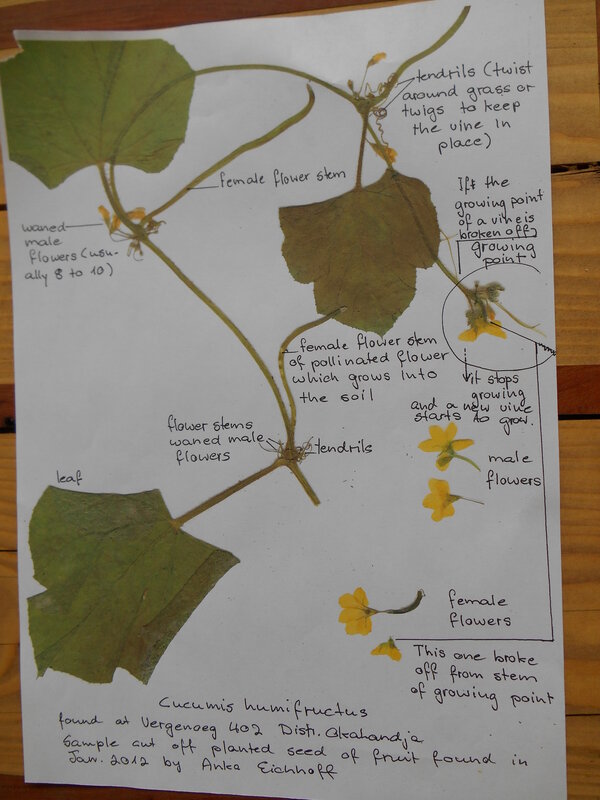 tendrils (twist
around grass or
twigs to keep
the vine in
place)
female flower stem
If the
growing point
of a vine is
broken off,
growing
point
waned
male
flowers (usu-
ally 8 to 10)
female flower stem
of pollinated flower
which grows into
the soil
it stops
growing
and a new vine
starts to grow.
flower stems
waned male
flowers
tendrils
male
flowers
leaf
female
flowers
This one broke
off from stem
of growing point
Cucumis humifructus
found at Vergenoeg 402 Distr. Okahandja
Sample cut off planted seed of fruit found in
Jan. 2012 by Anka Eichhoff